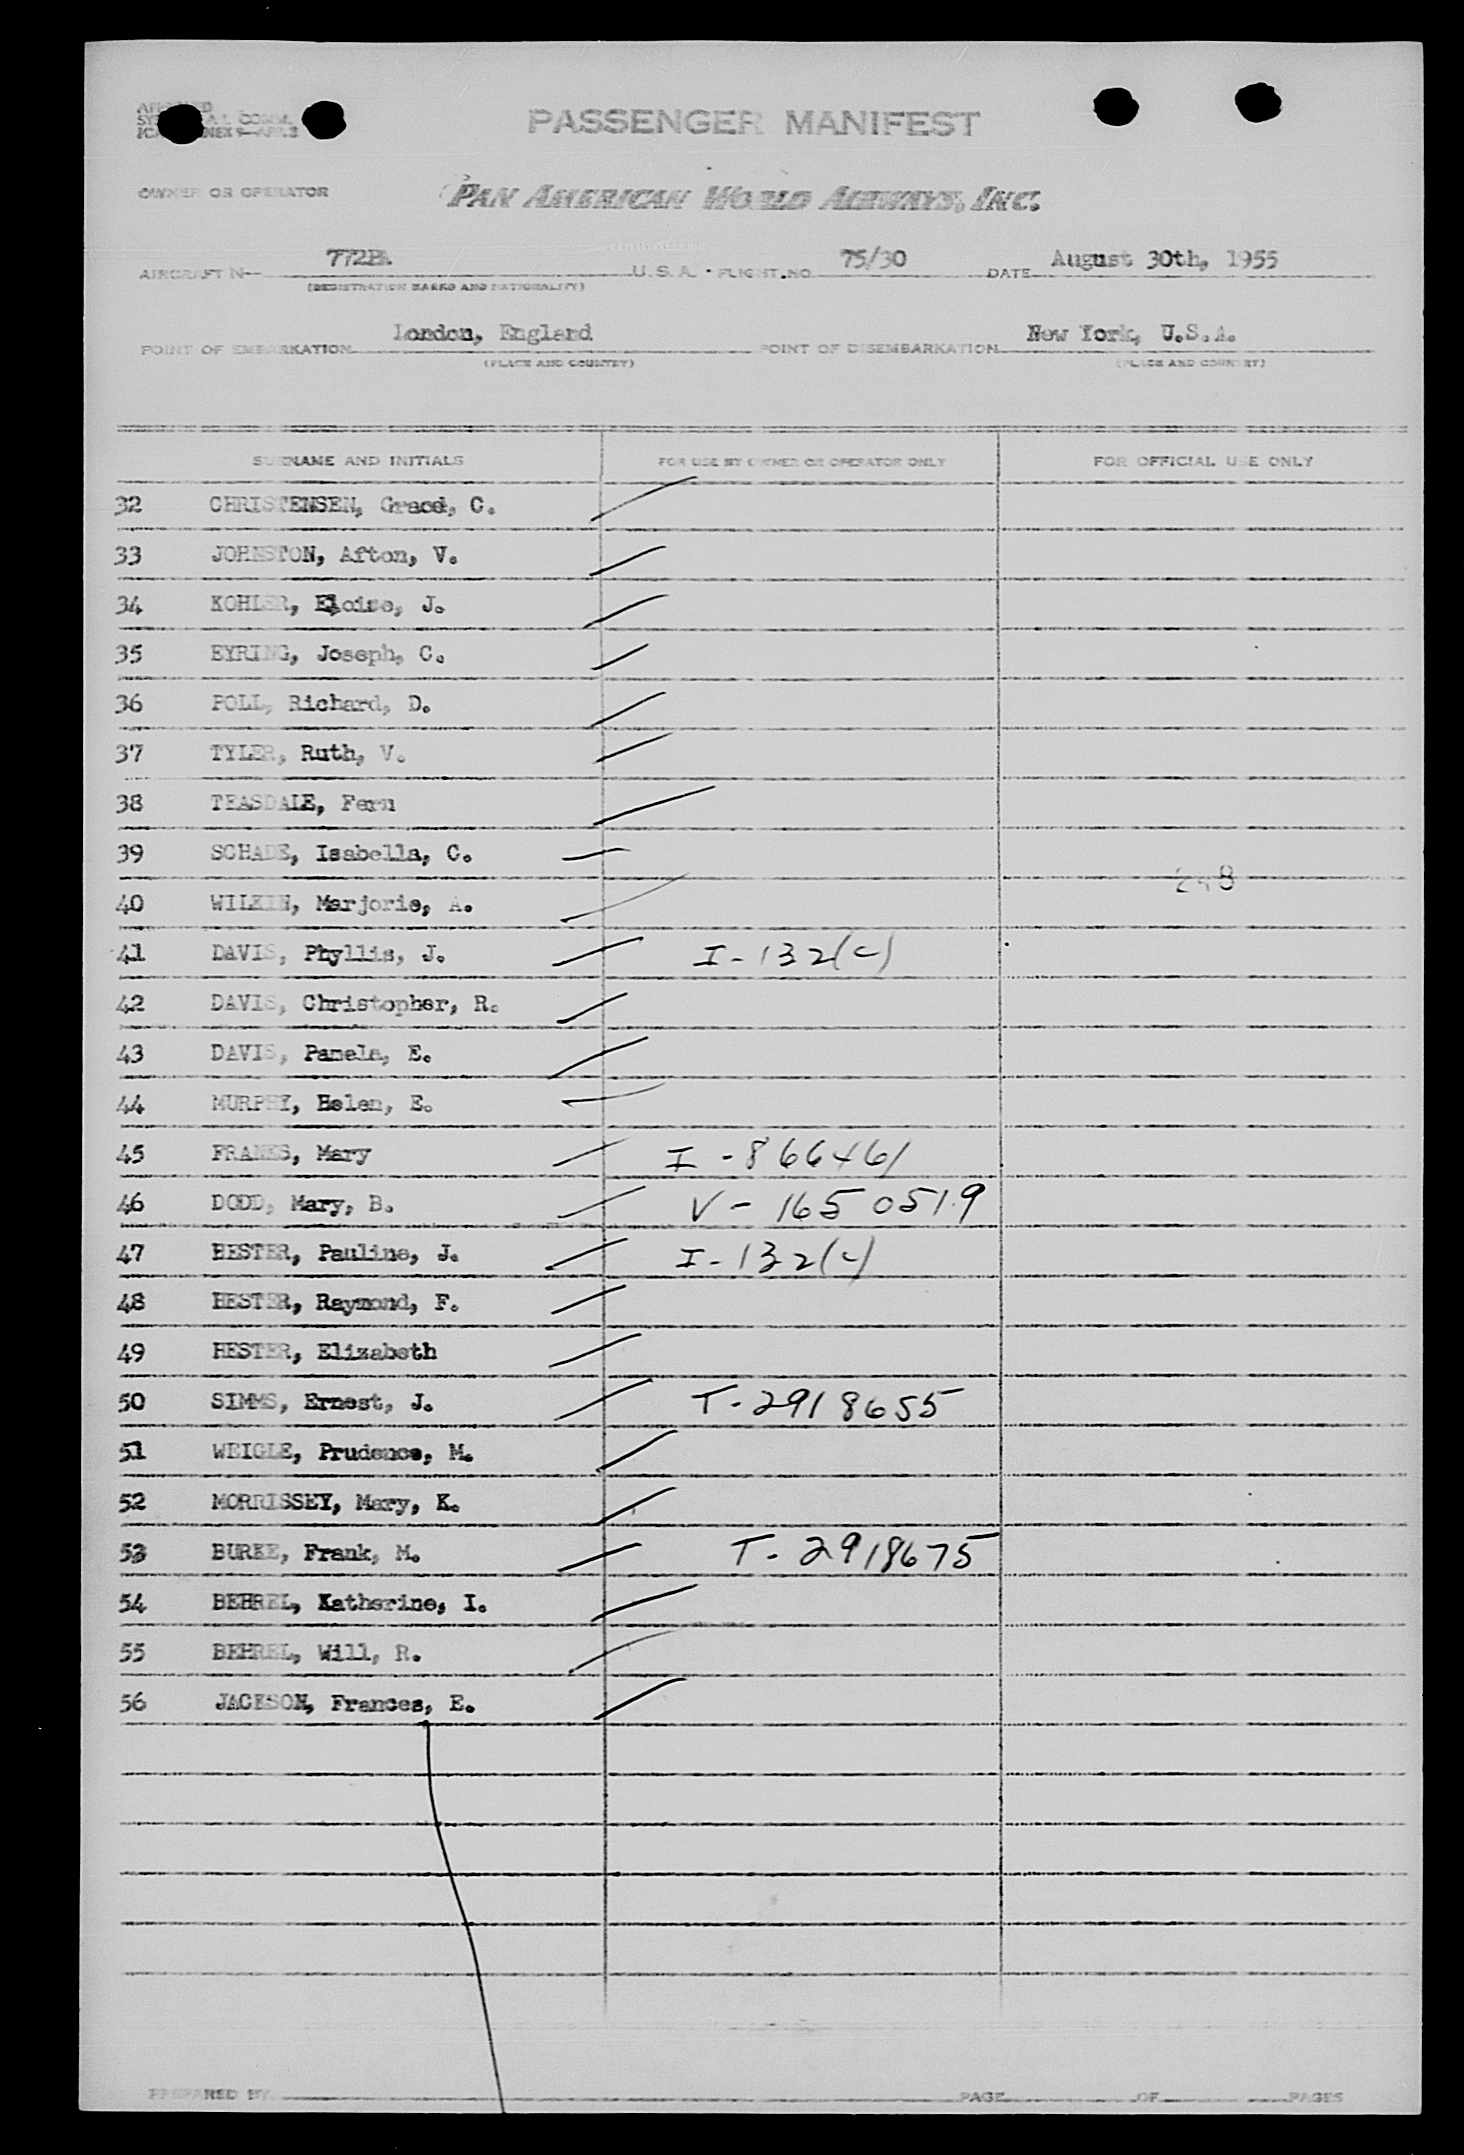 PASSENGER MANIFEST
OWNER OR OPERATOR PAN AMERICAN WORLD AIRWAYS, INC.
AIRCRAFT N— 772PA U.S.A. FLIGHT NO. 75/30 DATE August 30th, 1955
(REGISTRATION MARKS AND NATIONALITY)
POINT OF EMBARKATION London, England POINT OF DISEMBARKATION New York, U.S.A.
(PLACE AND COUNTRY) (PLACE AND COUNTRY)
SURNAME AND INITIALS FOR USE BY OWNER OR OPERATOR ONLY FOR OFFICIAL USE ONLY
32 CHRISTENSEN, Grace, C.
33 JOHNSTON, Afton, V.
34 KOHLER, Eloise, J.
35 EYRING, Joseph, C.
36 POLL, Richard, D.
37 TYLER, Ruth, V.
38 TEASDALE, Fern
39 SCHADE, Isabella, C.
40 WILKIN, Marjorie, A.
41 DAVIS, Phyllis, J. I-132(c)
42 DAVIS, Christopher, R.
43 DAVIS, Pamela, E.
44 MURPHY, Helen, E.
45 FRANKS, Mary I-866461
46 DODD, Mary, B. V-1650519
47 HESTER, Pauline, J. I-132(c)
48 HESTER, Raymond, F.
49 HESTER, Elizabeth
50 SIMMS, Ernest, J. T-2918655
51 WEIGLE, Prudence, M.
52 MORRISSEY, Mary, K.
53 BURKE, Frank, M. T-2918675
54 BEHREL, Katherine, I.
55 BEHREL, Will, R.
56 JACKSON, Frances, E.
PREPARED BY PAGE OF PAGES